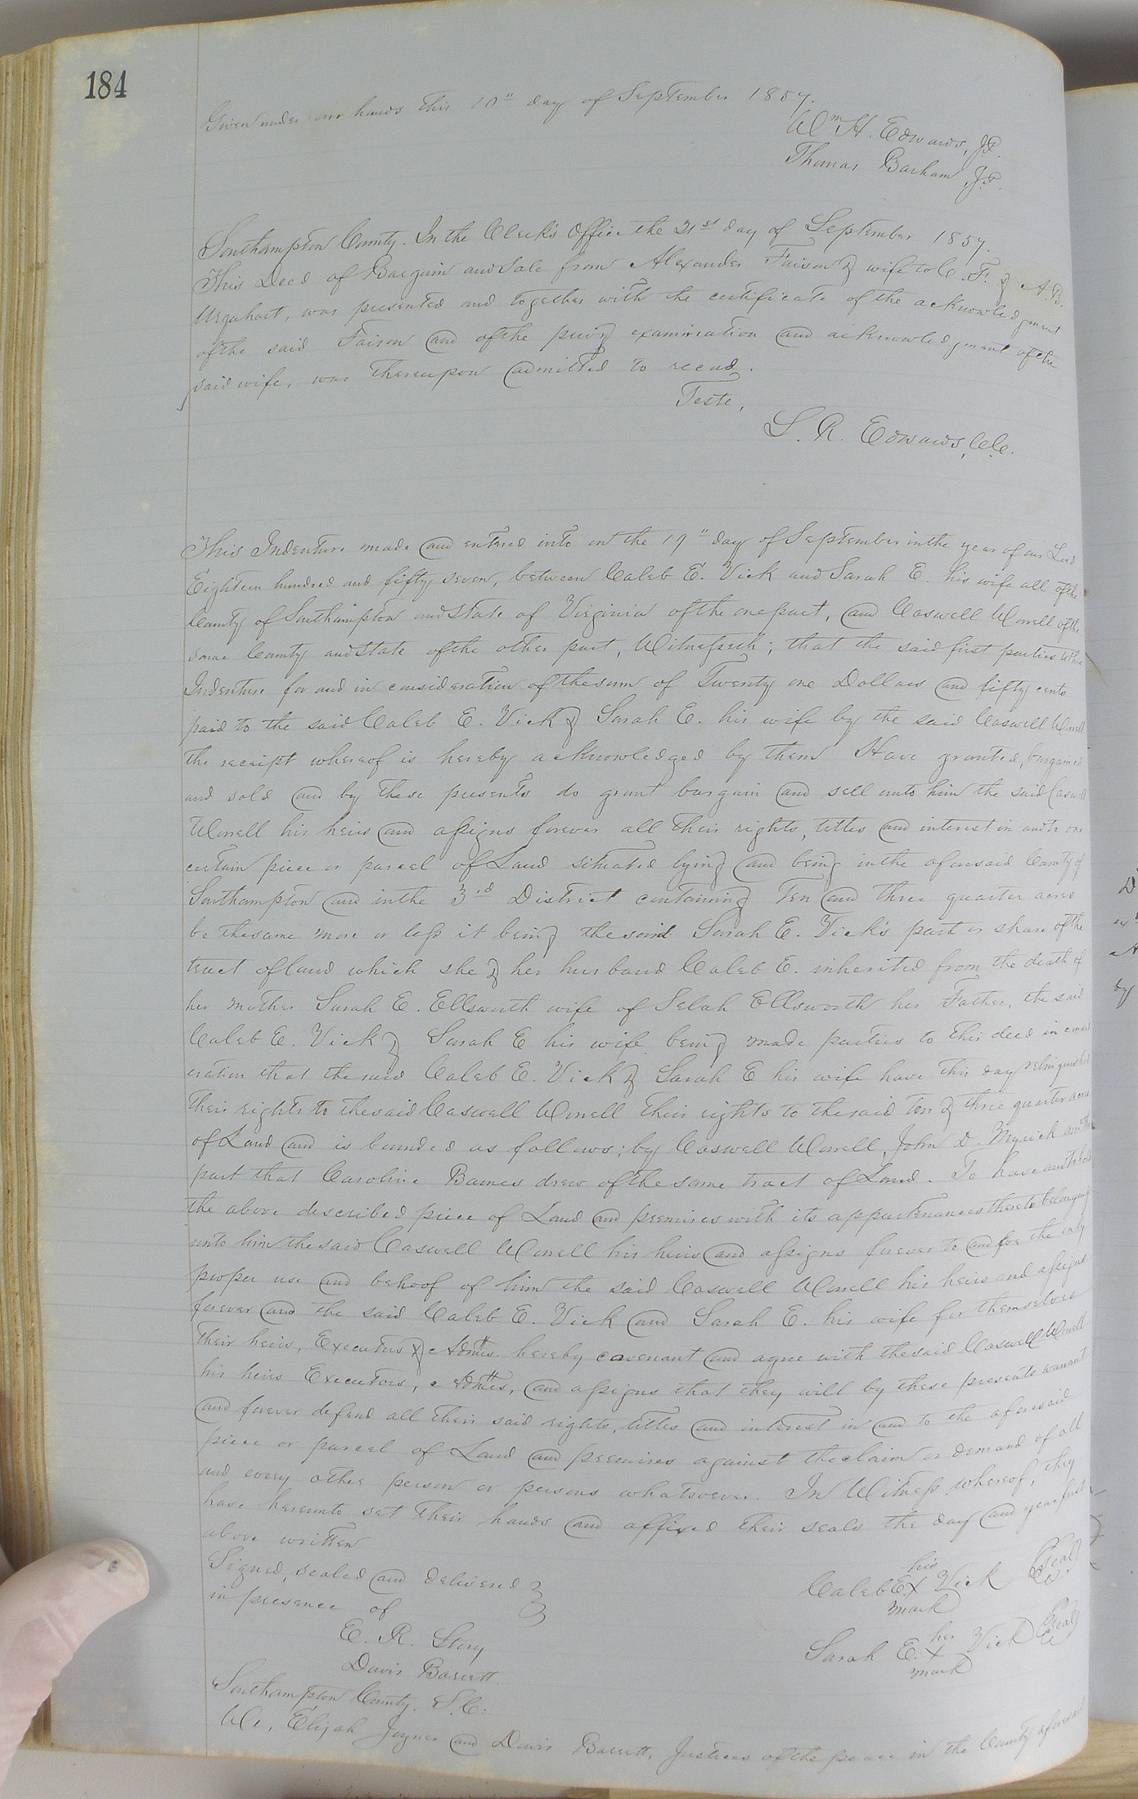 184
Given under our hands this 10th day of September 1857.
Wm H. Edwards, J.P.
Thomas Barham J.P.
Southampton County. In the Clerk's Office the 21st day of September 1857.
This Deed of Bargain and Sale from Alexander Faison & wife to C. F. & A. B.
Urquhart, was presented and together with the certificate of the acknowledgment
of the said Faison and of the privy examination and acknowledgment of the
said wife, was thereupon admitted to record.
Teste,
L. R. Edwards, C.C.
This Indenture made and entered into on the 19th day of September in the year of our Lord
Eighteen hundred and fifty seven, between Caleb E. Vick and Sarah E. his wife all of the
County of Southampton and State of Virginia of the one part, and Caswell Worrell of the
same County and State of the other part, Witnesseth; that the said first parties to this
Indenture for and in consideration of the sum of Twenty one Dollars and fifty cents
paid to the said Caleb E. Vick & Sarah E. his wife by the said Caswell Worrell
the receipt whereof is hereby acknowledged by them Have granted, bargained
and sold and by these presents do grant bargain and sell unto him the said Caswell
Worrell his heirs and assigns forever all their rights, titles and interest in and to one
certain piece or parcel of Land situated lying and being in the aforesaid County of
Southampton and in the 3rd District containing Ten and three quarter acres
be the same more or less it being the said Sarah E. Vick's part or share of the
tract of land which she & her husband Caleb E. inherited from the death of
her mother Sarah E. Ellsworth wife of Selah Ellsworth her Father, the said
Caleb E. Vick & Sarah E his wife being made parties to this deed in consid
eration that the said Caleb E. Vick & Sarah E his wife have this day relinquished
their rights to the said Caswell Worrell their rights to the said ten & three quarter acres
of Land and is bounded as follows; by Caswell Worrell, John D. Myrick and the
part that Caroline Barnes drew of the same tract of Land. To have and to hold
the above described piece of Land and premises with its appurtenances thereto belonging
unto him the said Caswell Worrell his heirs and assigns forever to and for the only
proper use and behoof of him the said Caswell Worrell his heirs and assigns
forever and the said Caleb E. Vick and Sarah E. his wife for themselves
their heirs, Executors & Admts. hereby covenant and agree with the said Caswell Worrell
his heirs Executors, Admts, and assigns that they will by these presents warrant
and forever defend all their said rights, titles and interest in and to the aforesaid
piece or parcel of Land and premises against the claim or demand of all
and every other person or persons whatsoever. In Witness whereof, they
have hereunto set their hands and affixed their seals the day and year first
above written
Signed, sealed and delivered
in presence of
E. R. Story
Davis Barrett
his
Caleb E X Vick Seal
mark
her
Sarah E. X Vick Seal
mark
Southampton County, S.C.
We, Elijah Joyner and Davis Barrett, Justices of the peace in the County aforesaid